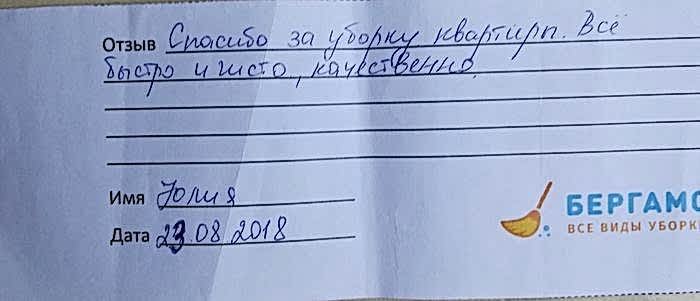 Отзыв Спасибо за уборку квартиры. Всё
быстро и чисто, качественно.
Имя Юлия
Дата 23.08.2018
БЕРГАМО
ВСЕ ВИДЫ УБОРК